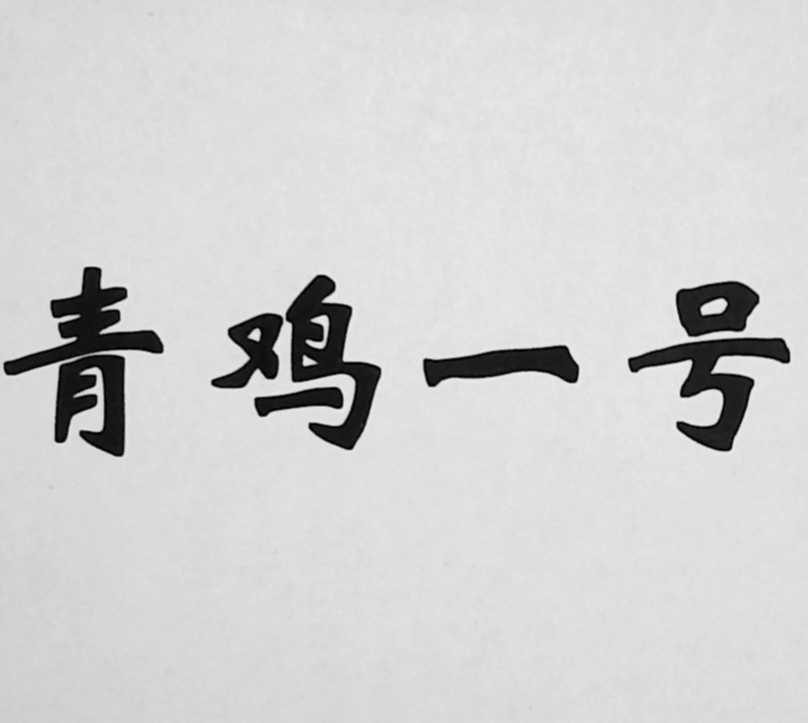 青鸡一号